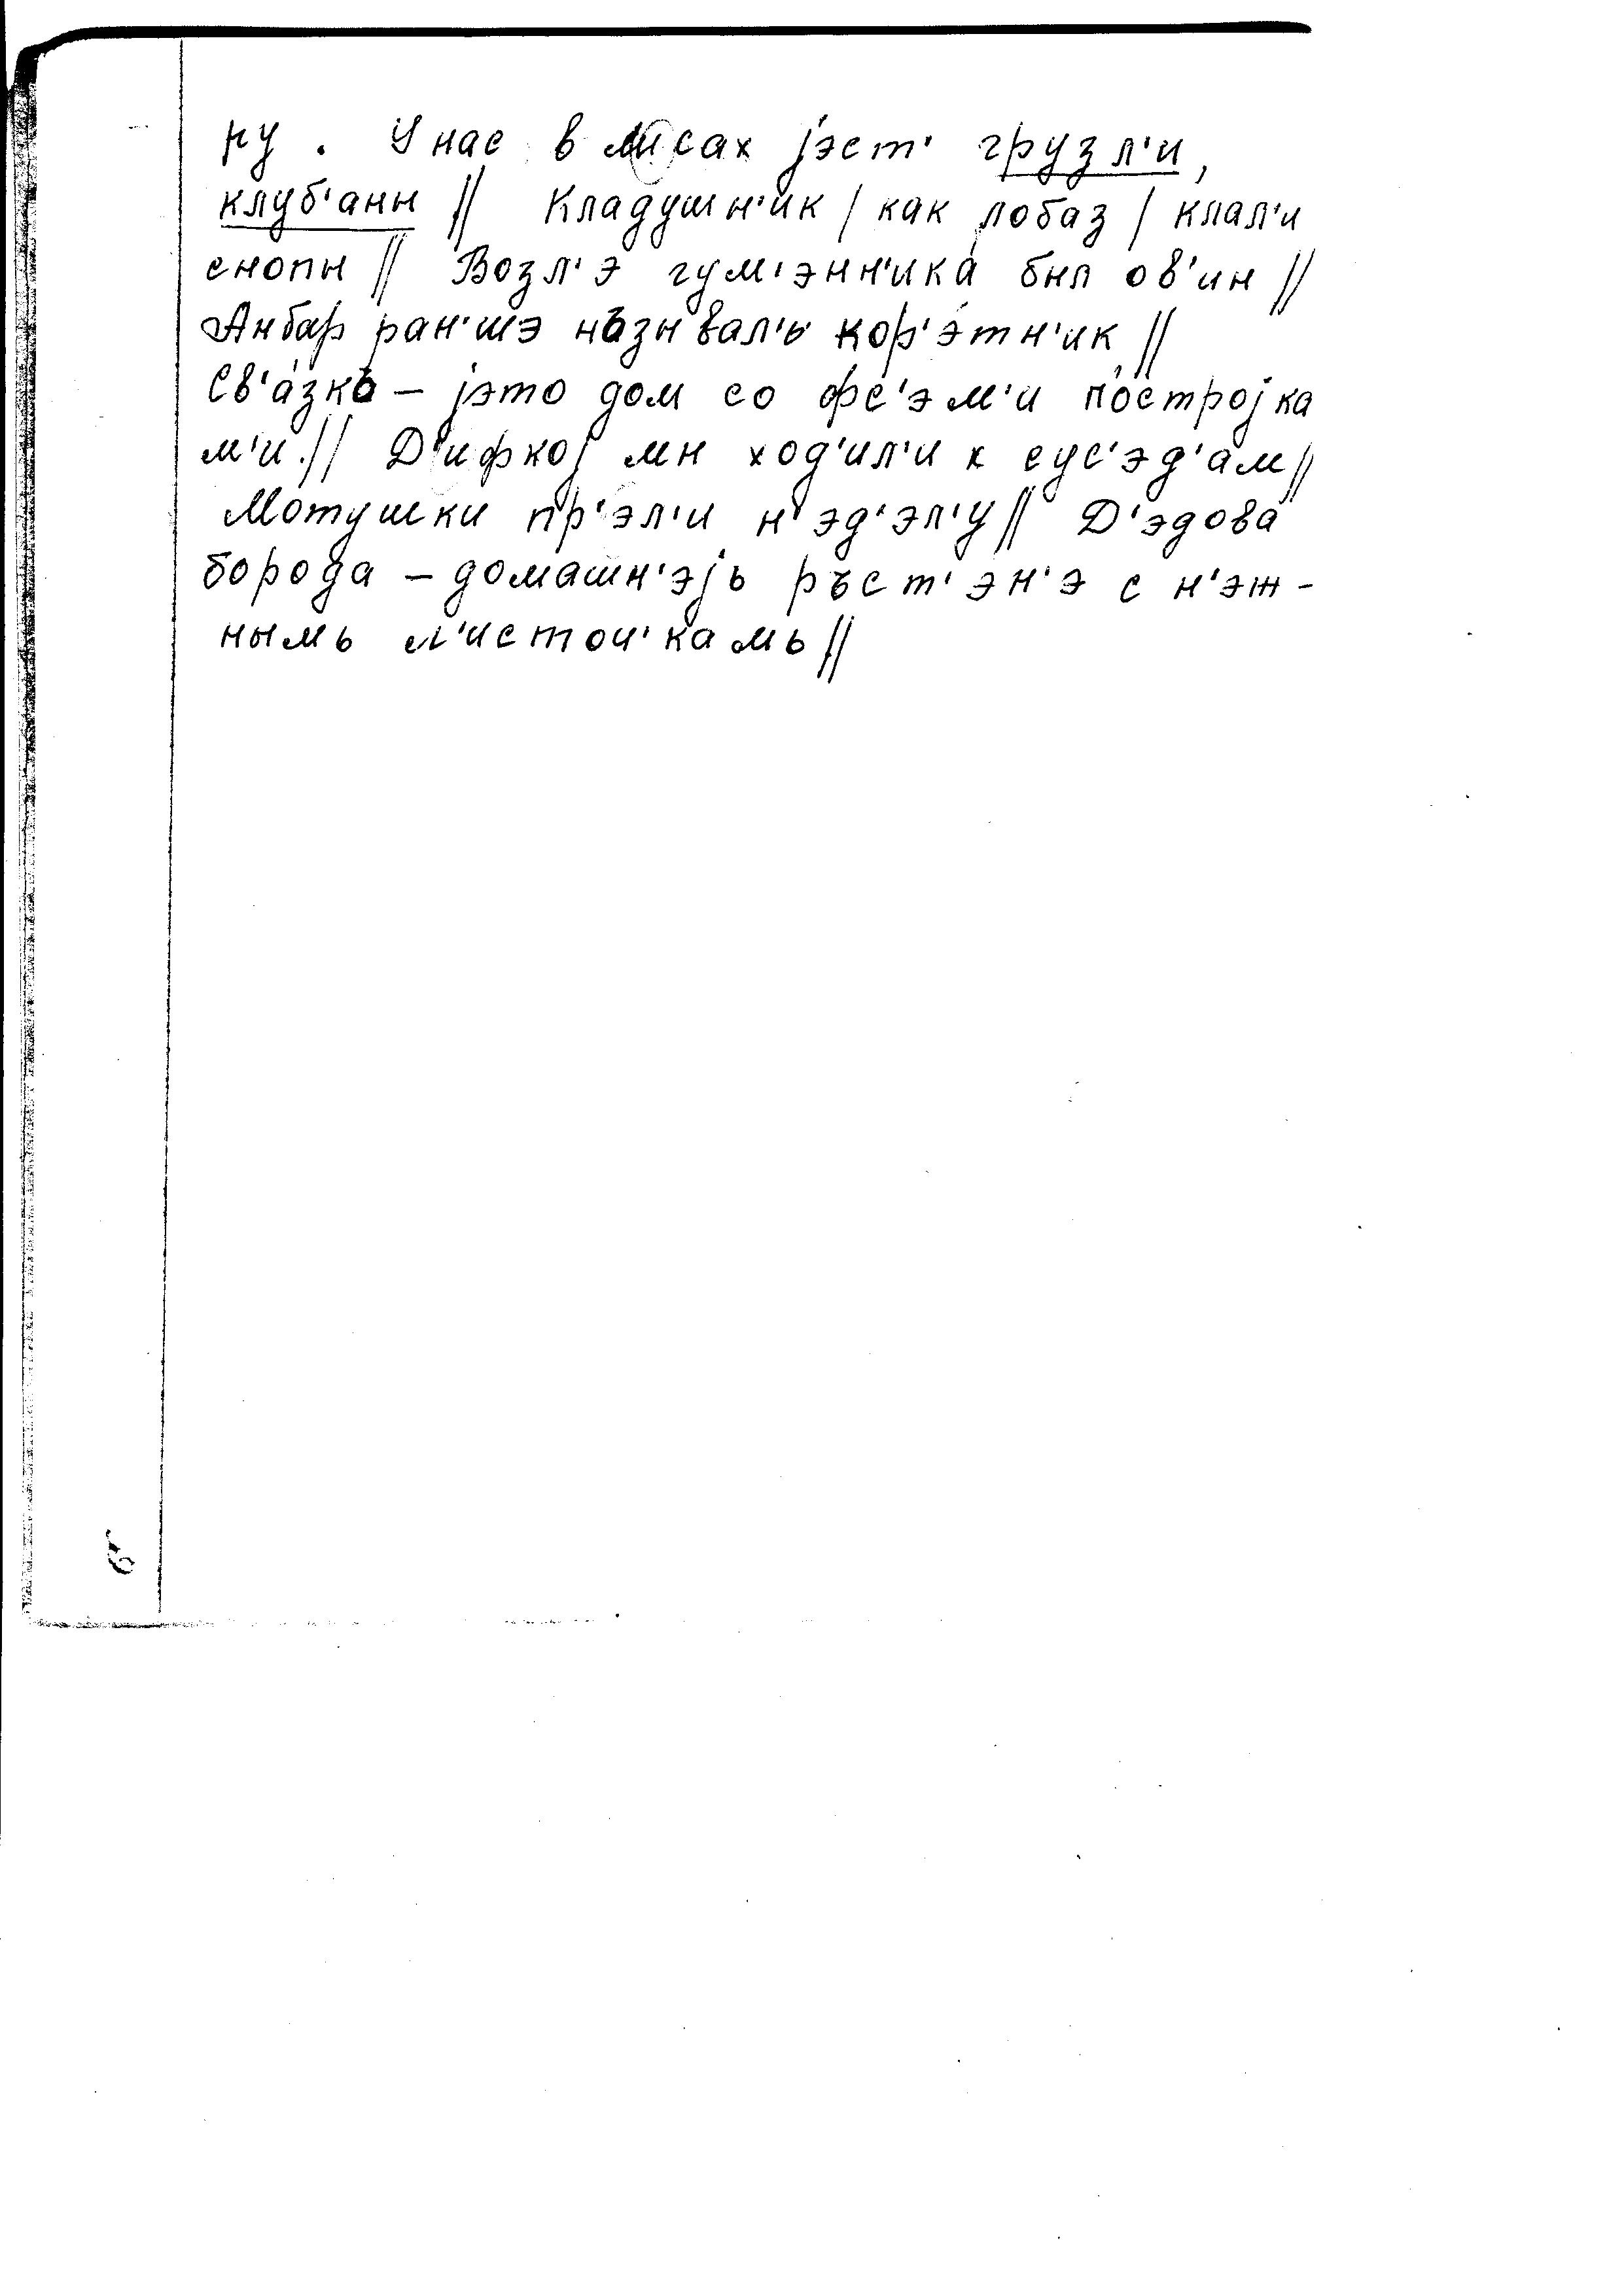 ру. У нас в лисах јэст' грузл'и,
клуб'аны // Кладушн'ик / как лобаз / клал'и
снопы // Возл'э гум'энн'ика́ был ов'ин //
Анбар ран'шэ нъзывал'ь кор'э́тн'ик //
Св'а́зкъ – јэто дом со фс'эм'и по́стројка
м'и // Д'ифкој мы ход'ил'и к сус'эд'ам //
Мотушки пр'эл'и н'эд'эл'у // Д'эдова́
борода – домашн'эјь ръст'эн'э с н'эж-
нымь л'источ'камь //